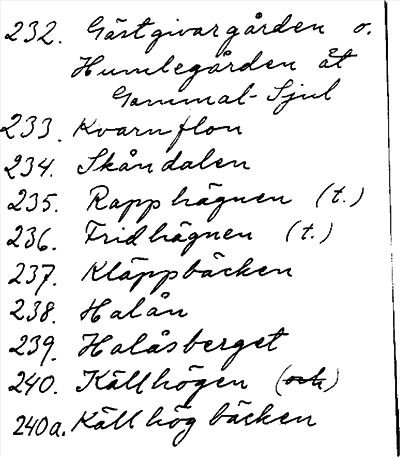 232. Gästgivargården o.
Humlegården åt
Gammal-Sjul
233. Kvarnflon
234. Skåndalen
235. Rapphägnen (t.)
236. Fridhägnen (t.)
237. Kläppbäcken
238. Halån
239. Halåsberget
240. Källhögen (och)
240a. Källhögbäcken